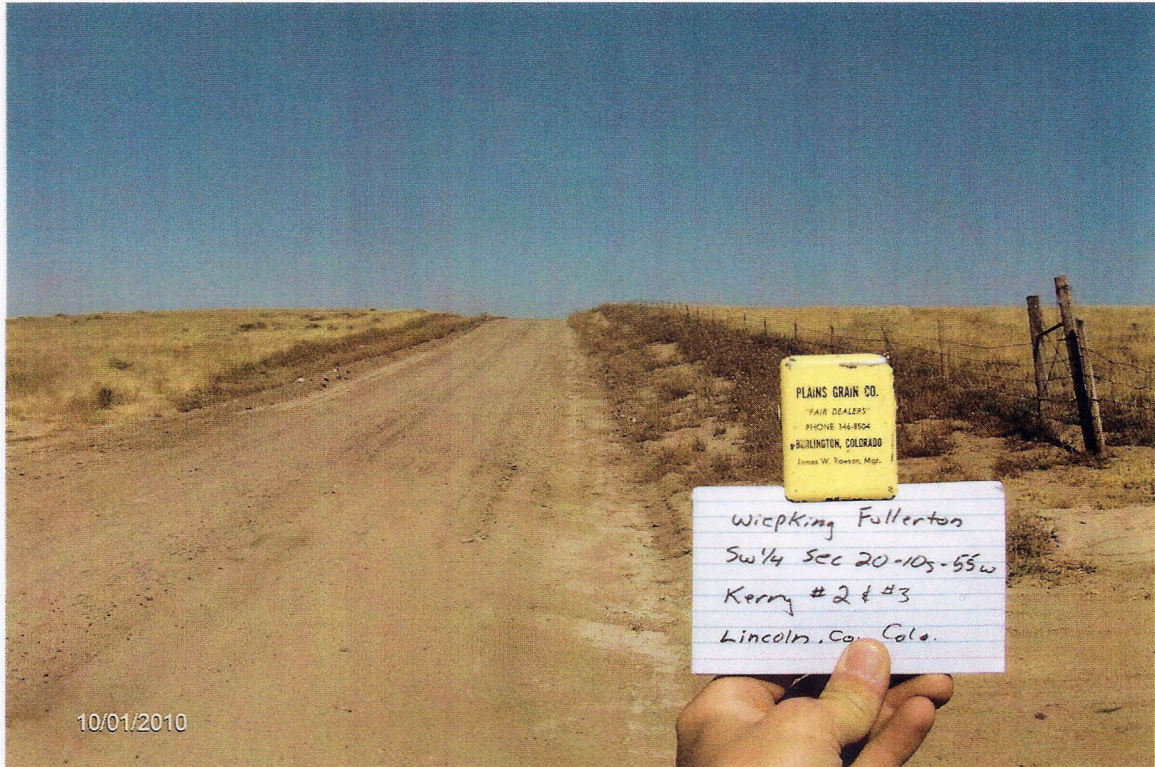 PLAINS GRAIN CO.
"FAIR DEALERS"
PHONE 346-8504
BURLINGTON, COLORADO
James W. Rowson, Mgr.
Wiepking Fullerton
SW 1/4 Sec 20-10s-55w
Kerry #2 & #3
Lincoln. Co. Colo.
10/01/2010